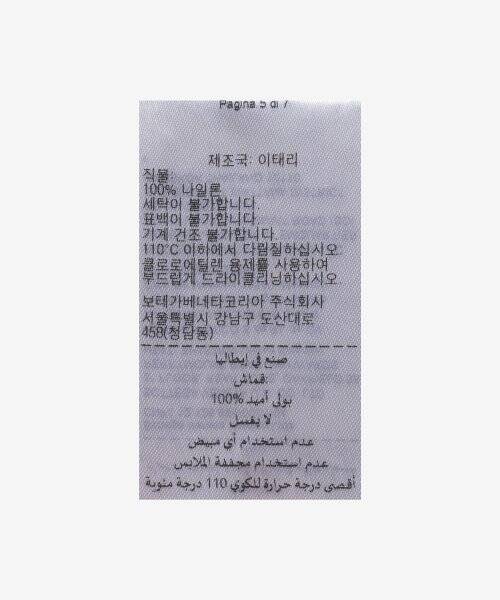 Pagina 5 di 7
제조국: 이태리
직물
100% 나일론
세탁이 불가합니다.
표백이 불가합니다.
기계 건조 불가합니다.
110°C 이하에서 다림질하십시오.
클로로에틸렌 용제를 사용하여
부드럽게 드라이클리닝하십시오.
보테가베네타코리아 주식회사
서울특별시 강남구 도산대로
458(청담동)
صنع في إيطاليا
قماش:
بولى أميد %100
لا يغسل
عدم استخدام أي مبيض
عدم استخدام مجففة الملابس
أقصى درجة حرارة للكوي 110 درجة مئوية